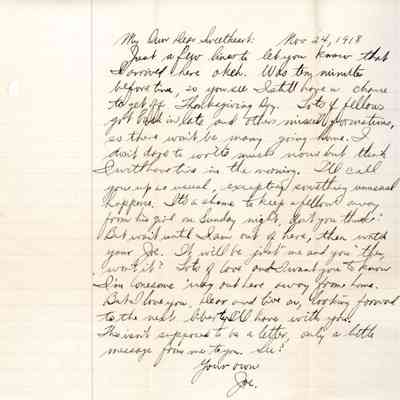 My Our Dear Sweetheart: Nov 24, 1918
Just a few lines to let you know that
I arrived here okeh. Was ten minutes
before time, so you see I still have a chance
to get off Thanksgiving Day. Lots of fellows
got back in late and others missed formations,
so there won't be many going home. I
don't to write much now but think
I will in the morning. I'll call
you up as usual, excepting something unusual
happens. It's a shame to keep a fellow away
from his girl on Sunday night, don't you think?
But wait until I am out of here, then watch
your Joe. It will be just "me and you" then,
won't it? Lots of love and I want you to know
I'm lonesome 'way out here away from home.
But I love you, dear and live on, looking forward
to the next liberty I'll have with you.
This isn't supposed to be a letter, only a little
message from me to you. See?
Your own
Joe.